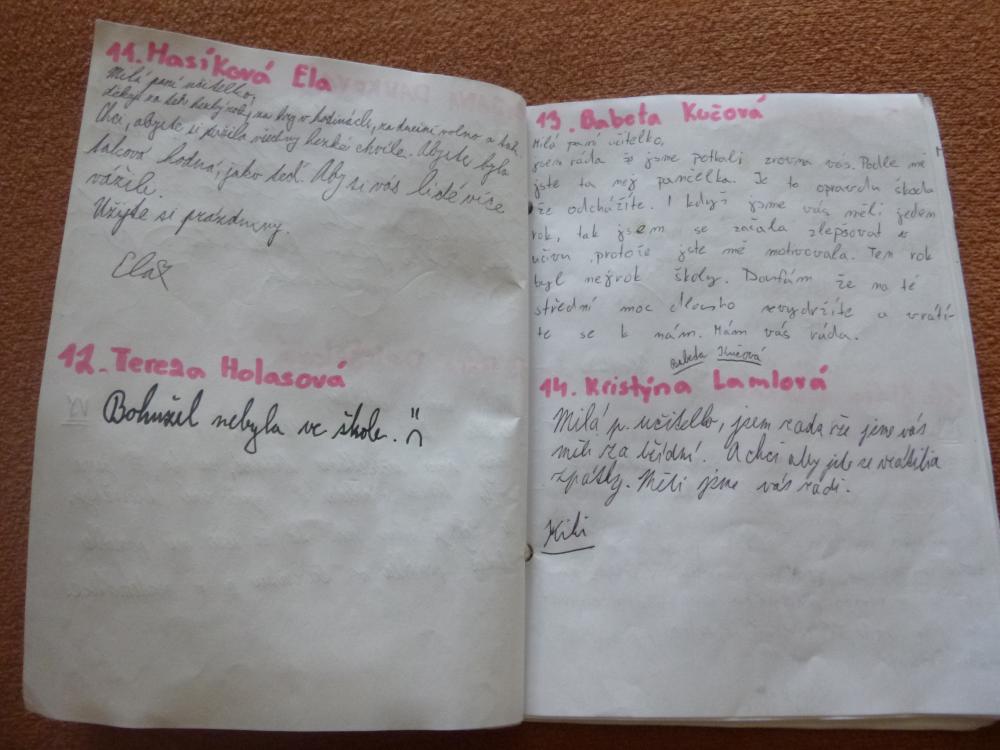 11. Hasíková Ela
Milá paní učitelko,
děkuji za ten hezký rok, za hry v hodinách, za dnešní volno a tak.
Chci, abyste si prožila všechny hezké chvíle. Abyste byla
taková hodná, jako teď. Aby si vás lidé více
vážili.
Užijte si prázdniny.
Ela
12. Tereza Holasová
Bohužel nebyla ve škole.
13. Babeta Kučová
Milá paní učitelko,
jsem ráda že jsme potkali zrovna vás. Podle mě
jste ta nej pančelka. Je to opravdu škoda
že odcházíte. I když jsme vás měli jeden
rok, tak jsem se začala zlepšovat v
učivu, protože jste mě motivovala. Ten rok
byl nejrok školy. Doufám že na té
střední moc dlouho nevydržíte a vrátí-
te se k nám. Mám vás ráda.
Babeta Kučová
14. Kristýna Lamlová
Milá p. učitelko, jsem rada že jsme vás
měli za třídní. A chci aby jste se vrátila
zpátky. Měli jsme vás rádi.
Kiki